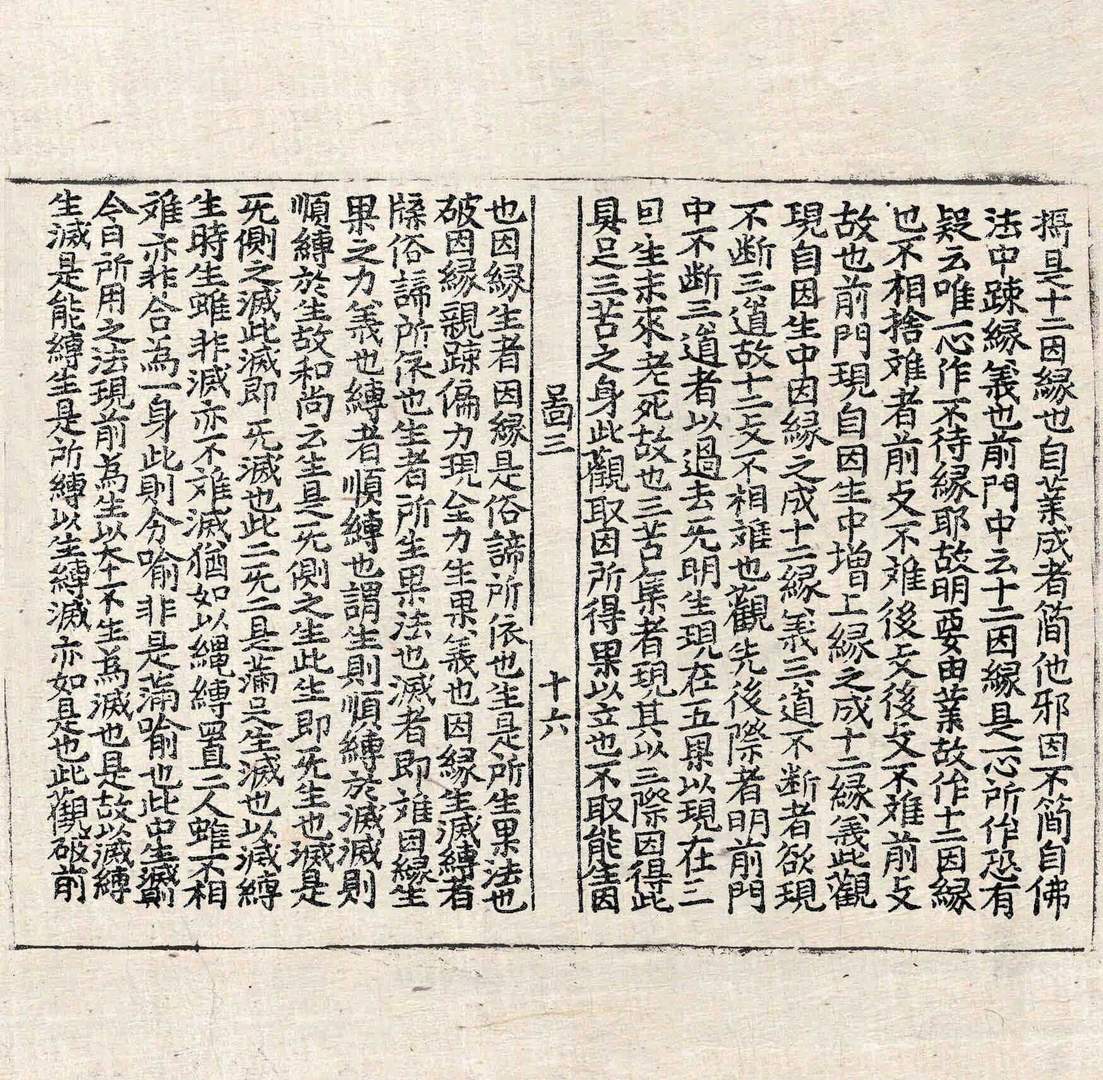 攝是十二因緣也自業成者簡他邪因不簡自佛
法中踈緣義也前門中云十二因緣是一心所作恐有
疑云唯一心作不待緣耶故明要由業故作十二因緣
也不相捨𮥼者前支不𮥼後支後支不𮥼前支
故也前門現自因生中增上緣之成十二緣義此觀
現自因生中因緣之成十二緣義三道不斷者欲現
不斷三道故十二支不相𮥼也觀先後際者明前門
中不斷三道者以過去旡明生現在五果以現在二
曰生未來老死故也三苦集者現其以三際因得此
具足三苦之身此觀取因所得果以立也不取能生因
啚三 十六
也因緣生者因緣是俗諦所依也生是所生果法也
破因緣親踈偏力現全力生果義也因緣生滅縛者
牒俗諦所依也生者所生果法也滅者即𮥼因緣生
果之力義也縛者順縛也謂生則順縛於滅滅則
順縛於生故和尚云生是旡側之生此生即旡生也滅是
旡側之滅此滅即旡滅也此二旡二是滿足生滅也以滅縛
生時生雖非滅亦不𮥼滅猶如以繩縛置二人雖不相
𮥼亦非合為一身此則分喻非是滿喻也此中生滅則
今日所用之法現前為生以本來不生為滅也是故以滅縛
生滅是能縛生是所縛以生縛滅亦如是也此觀破前